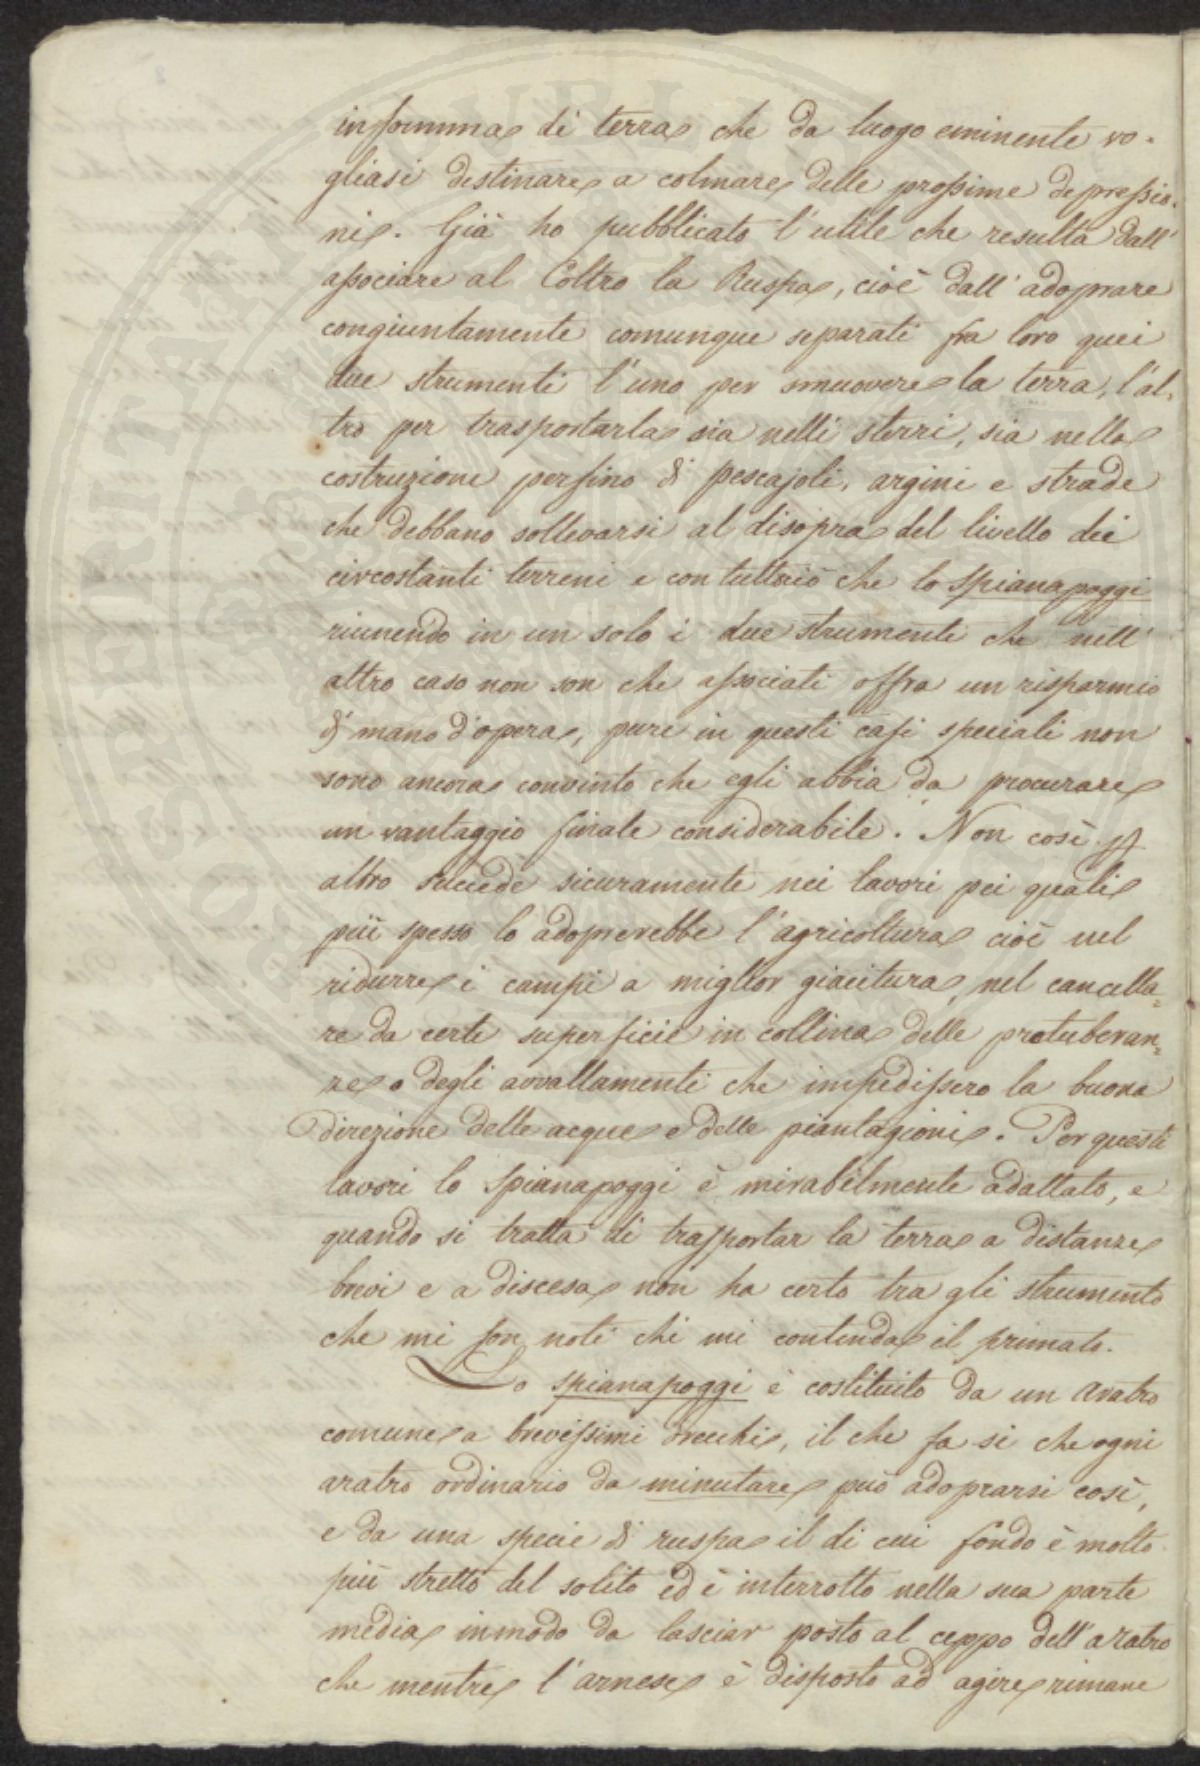 insomma di terra che da luogo eminente vo-
gliasi destinare a colmare delle prossime depressio-
ni. Già ho pubblicato l'utile che resulta dall'
associare al Coltro la Ruspa, cioè dall'adoprare
congiuntamente comunque separati fra loro quei
due strumenti l'uno per smuovere la terra, l'al-
tro per trasportarla sia nelli sterri, sia nella
costruzione perfino di pescajoli, argini e strade
che debbano sollevarsi al disopra del livello dei
circostanti terreni e con tuttociò che lo spianapoggi
riunendo in un solo i due strumenti che nell'
altro caso non son che associati offra un risparmio
di mano d'opera, pure in questi casi speciali non
sono ancora convinto che egli abbia da procurare
un vantaggio finale considerabile. Non così p
altro succede sicuramente nei lavori pei quali
più spesso lo adoprerebbe l'agricoltura cioè nel
ridurre i campi a miglior giacitura, nel cancella=
re da certe superficie in collina delle protuberan=
ze o degli avvallamenti che impedissero la buona
direzione delle acque e delle piantagioni. Per questi
lavori lo spianapoggi è mirabilmente adattato, e
quando si tratta di trasportar la terra a distanze
brevi e a discesa non ha certo tra gli strumento
che mi son noti chi mi contenda il primato.
Lo spianapoggi è costituito da un aratro
comune a brevissimi orecchi, il che fa si che ogni
aratro ordinario da minutare può adoprarsi così,
e da una specie di ruspa il di cui fondo è molto
più stretto del solito ed è interrotto nella sua parte
media in modo da lasciar posto al ceppo dell'aratro
che mentre l'arnese è disposto ad agire rimane